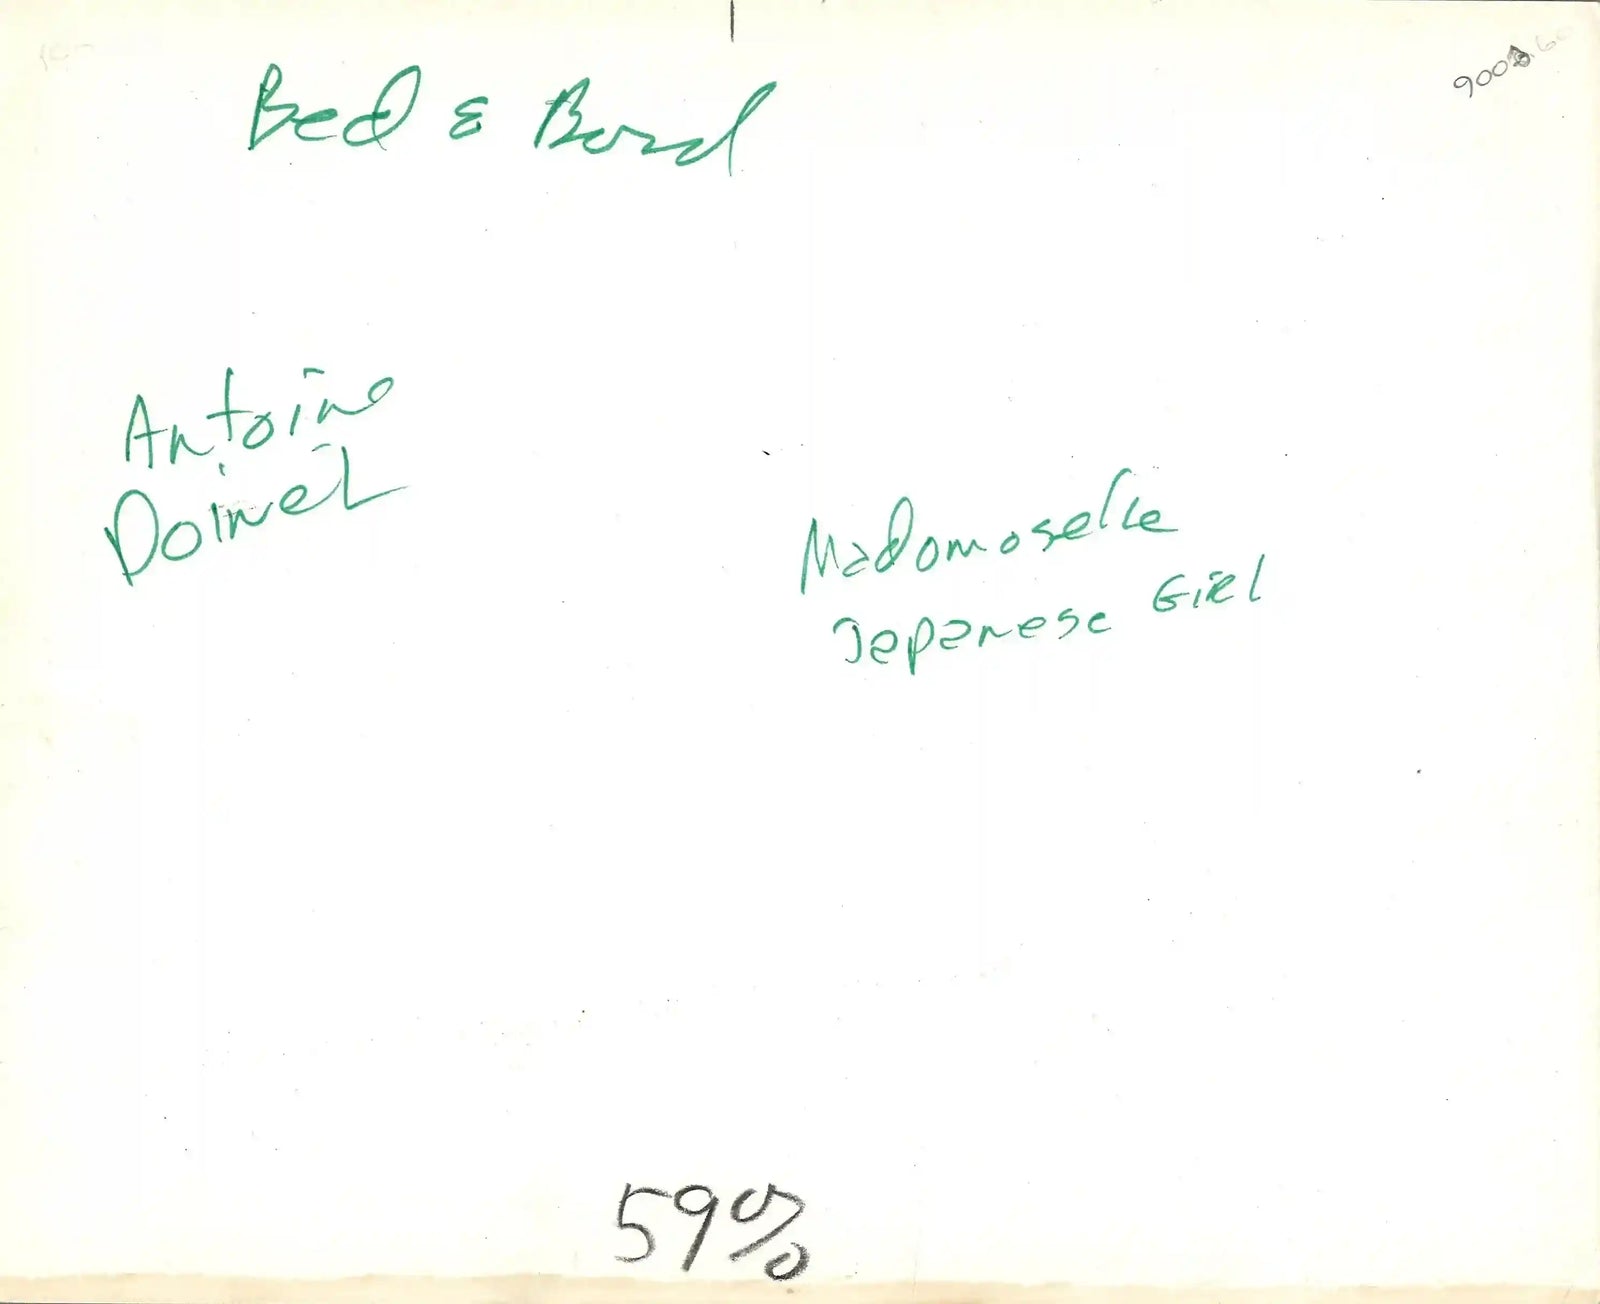 Bed & Bord
Antoine
Doinel
Madomoselle
Japanese Girl
59%